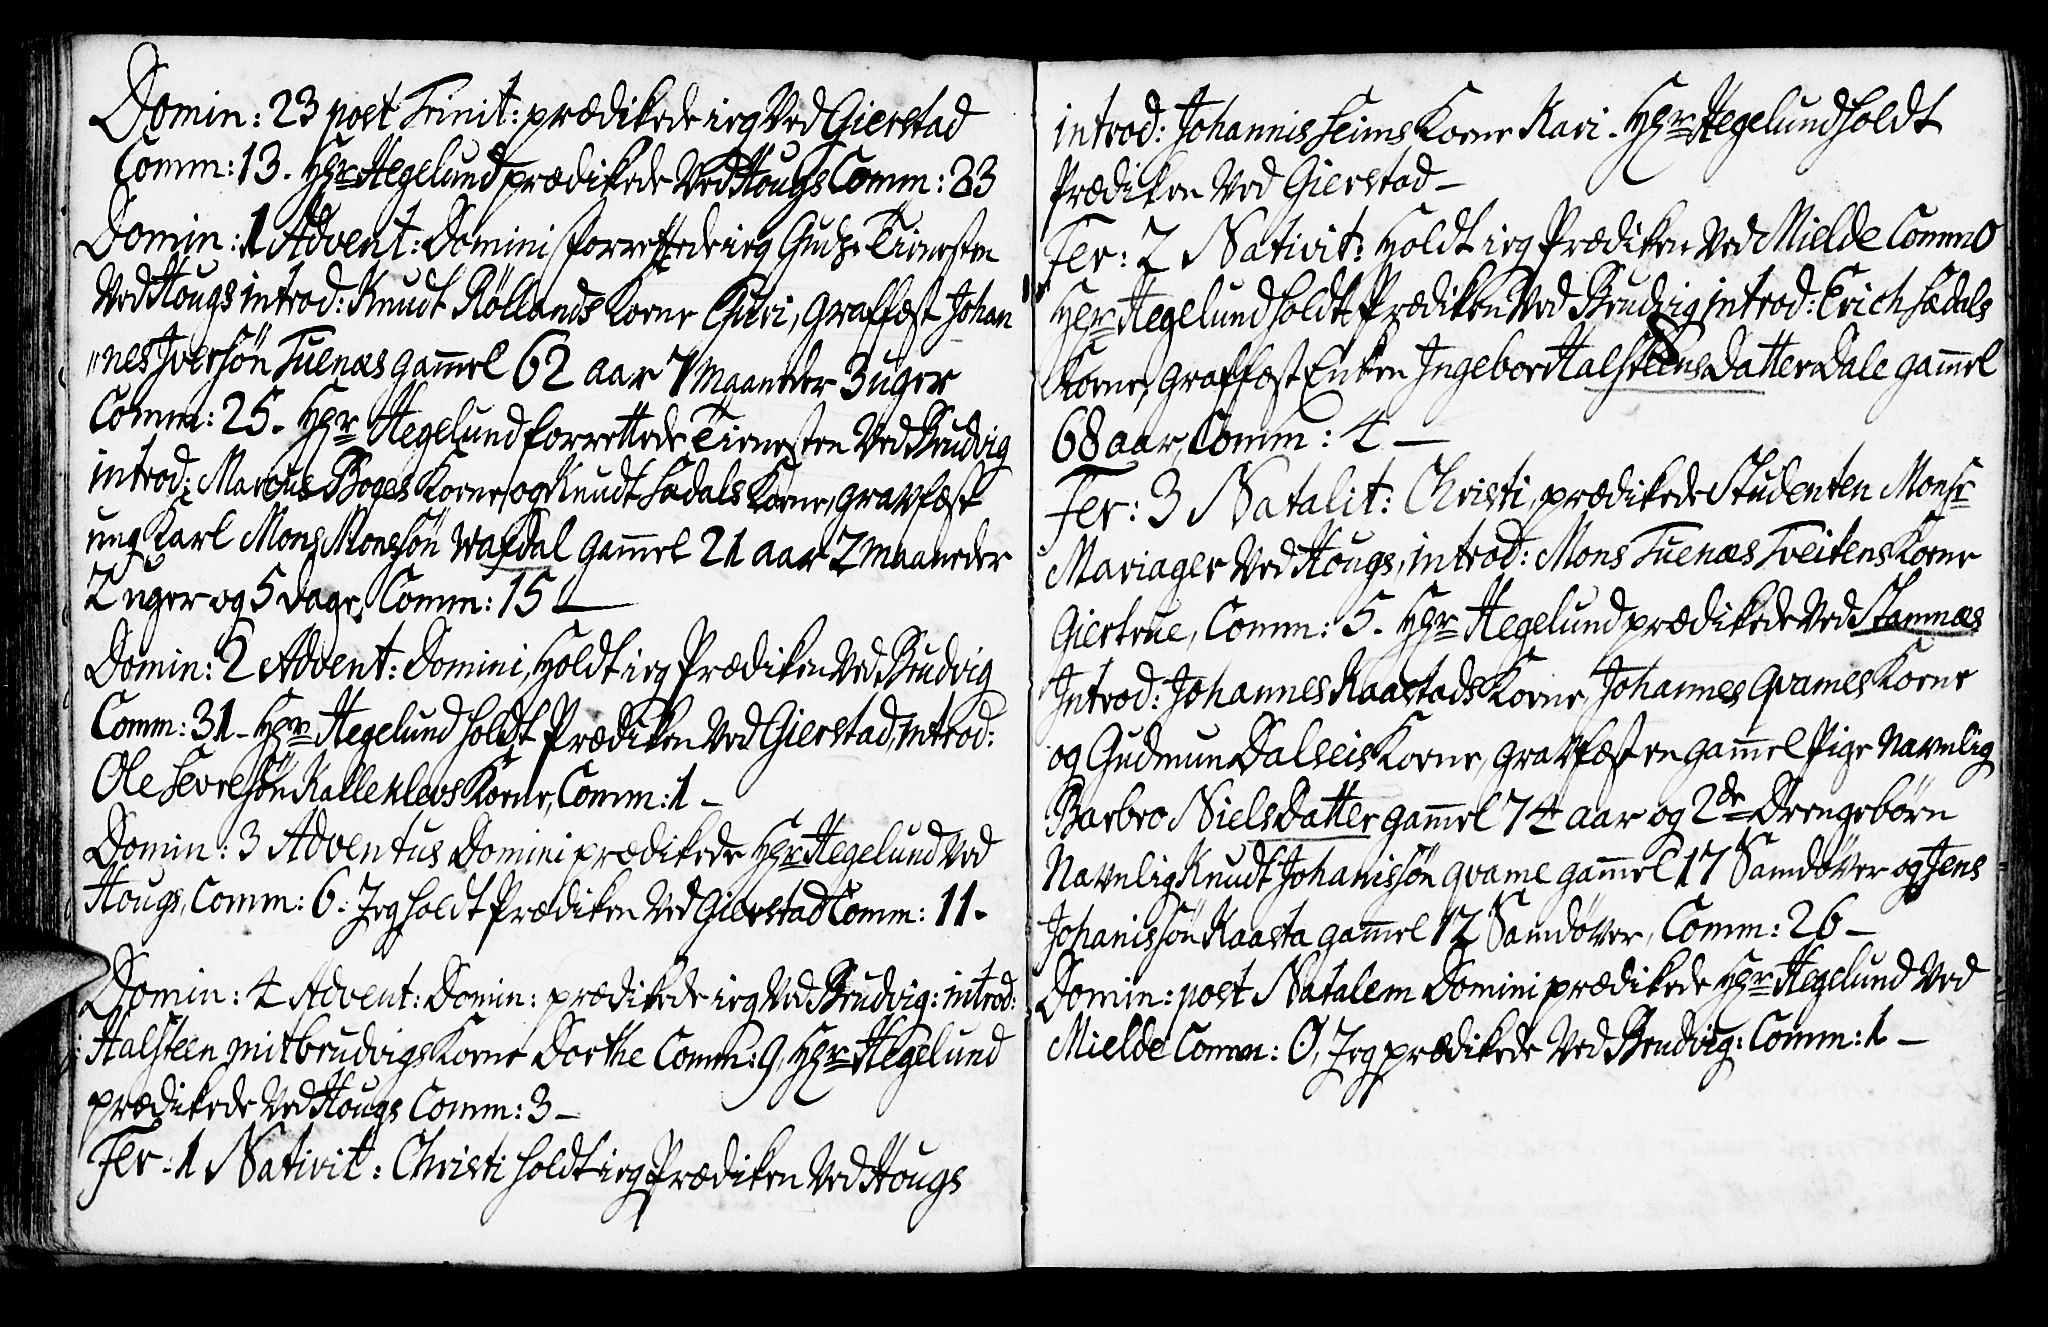 Domin: 23 post Trinit: prædikede ieg Ved Gierstad
Comm: 13. Hr Hegelund prædikede Ved Hougs Comm: 83
Domin: 1 Advent: Domini forrettede ieg Gudz Tienesten
Ved Hougs introd: Knudt Röllands Kone Guri, Graffæst Johan
"nes Jversön Tuenæs gam̅el 62 aar 7 Maaneder 3 uger
Comm: 25. Hr Hegelund forrettede Tienesten Ved Brudvig
introd: Marcus Boges Kone, og Knudt Sædals Kone, gravfæst
ung Karl Mons Monssön Wafdal gam̅el 21 aar 2 Maaneder
2 uger og 5 dage, Comm: 15 —
Domin: 2 Advent: Domini, Holdt ieg Prædiken Ved Brudvig
Comm: 31 - Hr Hegelund holdt Prædiken Ved Gierstad, introd:
Ole Sevresön Kalleklevs Kone, Comm: 1 -
Domin: 3 Adventus Domini prædikede Hr Hegelund Ved
Hougs, Comm: 6. Jeg holdt Prædiken Ved Gierstad Comm: 11.
Domin: 4 Advent: Domin: prædikede ieg Ved Brudvig: introd:
Halsteen mitbrudvigs Kone Dorthe Comm: 9, Hr Hegelund
prædikede Ved Hougs Comm: 3 -
Fer: 1 Nativit: Christi holdt ieg Prædiken Ved Hougs
introd: Johannis Seims Kone Kari. Hr Hegelund holdt
Prædiken Ved Gierstad —
Fer: 2 Nativit: Holdt ieg Prædiken Ved Mielde Comm 0
Hr Hegelund holdt Prædiken Ved Brudvig introd: Erich Sædals
Kone, graffæst Enken Ingebor Halsteens Datter Dale gam̅el
68 aar, Comm: 4 —
Fer: 3 Natalit: Christi, prædikede Studenten Monsr
Mariager Ved Hougs, introd: Mons Tuenæs Tveitens Kone
Giertrue, Comm: 5. Hr Hegelund prædikede Ved Stamnæs
Introd: Johannes Raastads Kone, Johannes Qvames Kone
og Gudmun Dalseis Kone, gravfæst en gam̅el Pige Navnlig
Barbro Niels Datter gam̅el 74 aar og 2de Drengebörn
Navnlig Knudt Johanissön Qvame gam̅el 17 Samdøver og Jens
Johanissön Raasta gam̅el 12 Samdøver, Comm: 26 —
Domin: post Natalem Domini prædikede Hr Hegelund Ved
Mielde Comm: 0, Jeg prædikede Ved Brudvig: Comm: 1 —